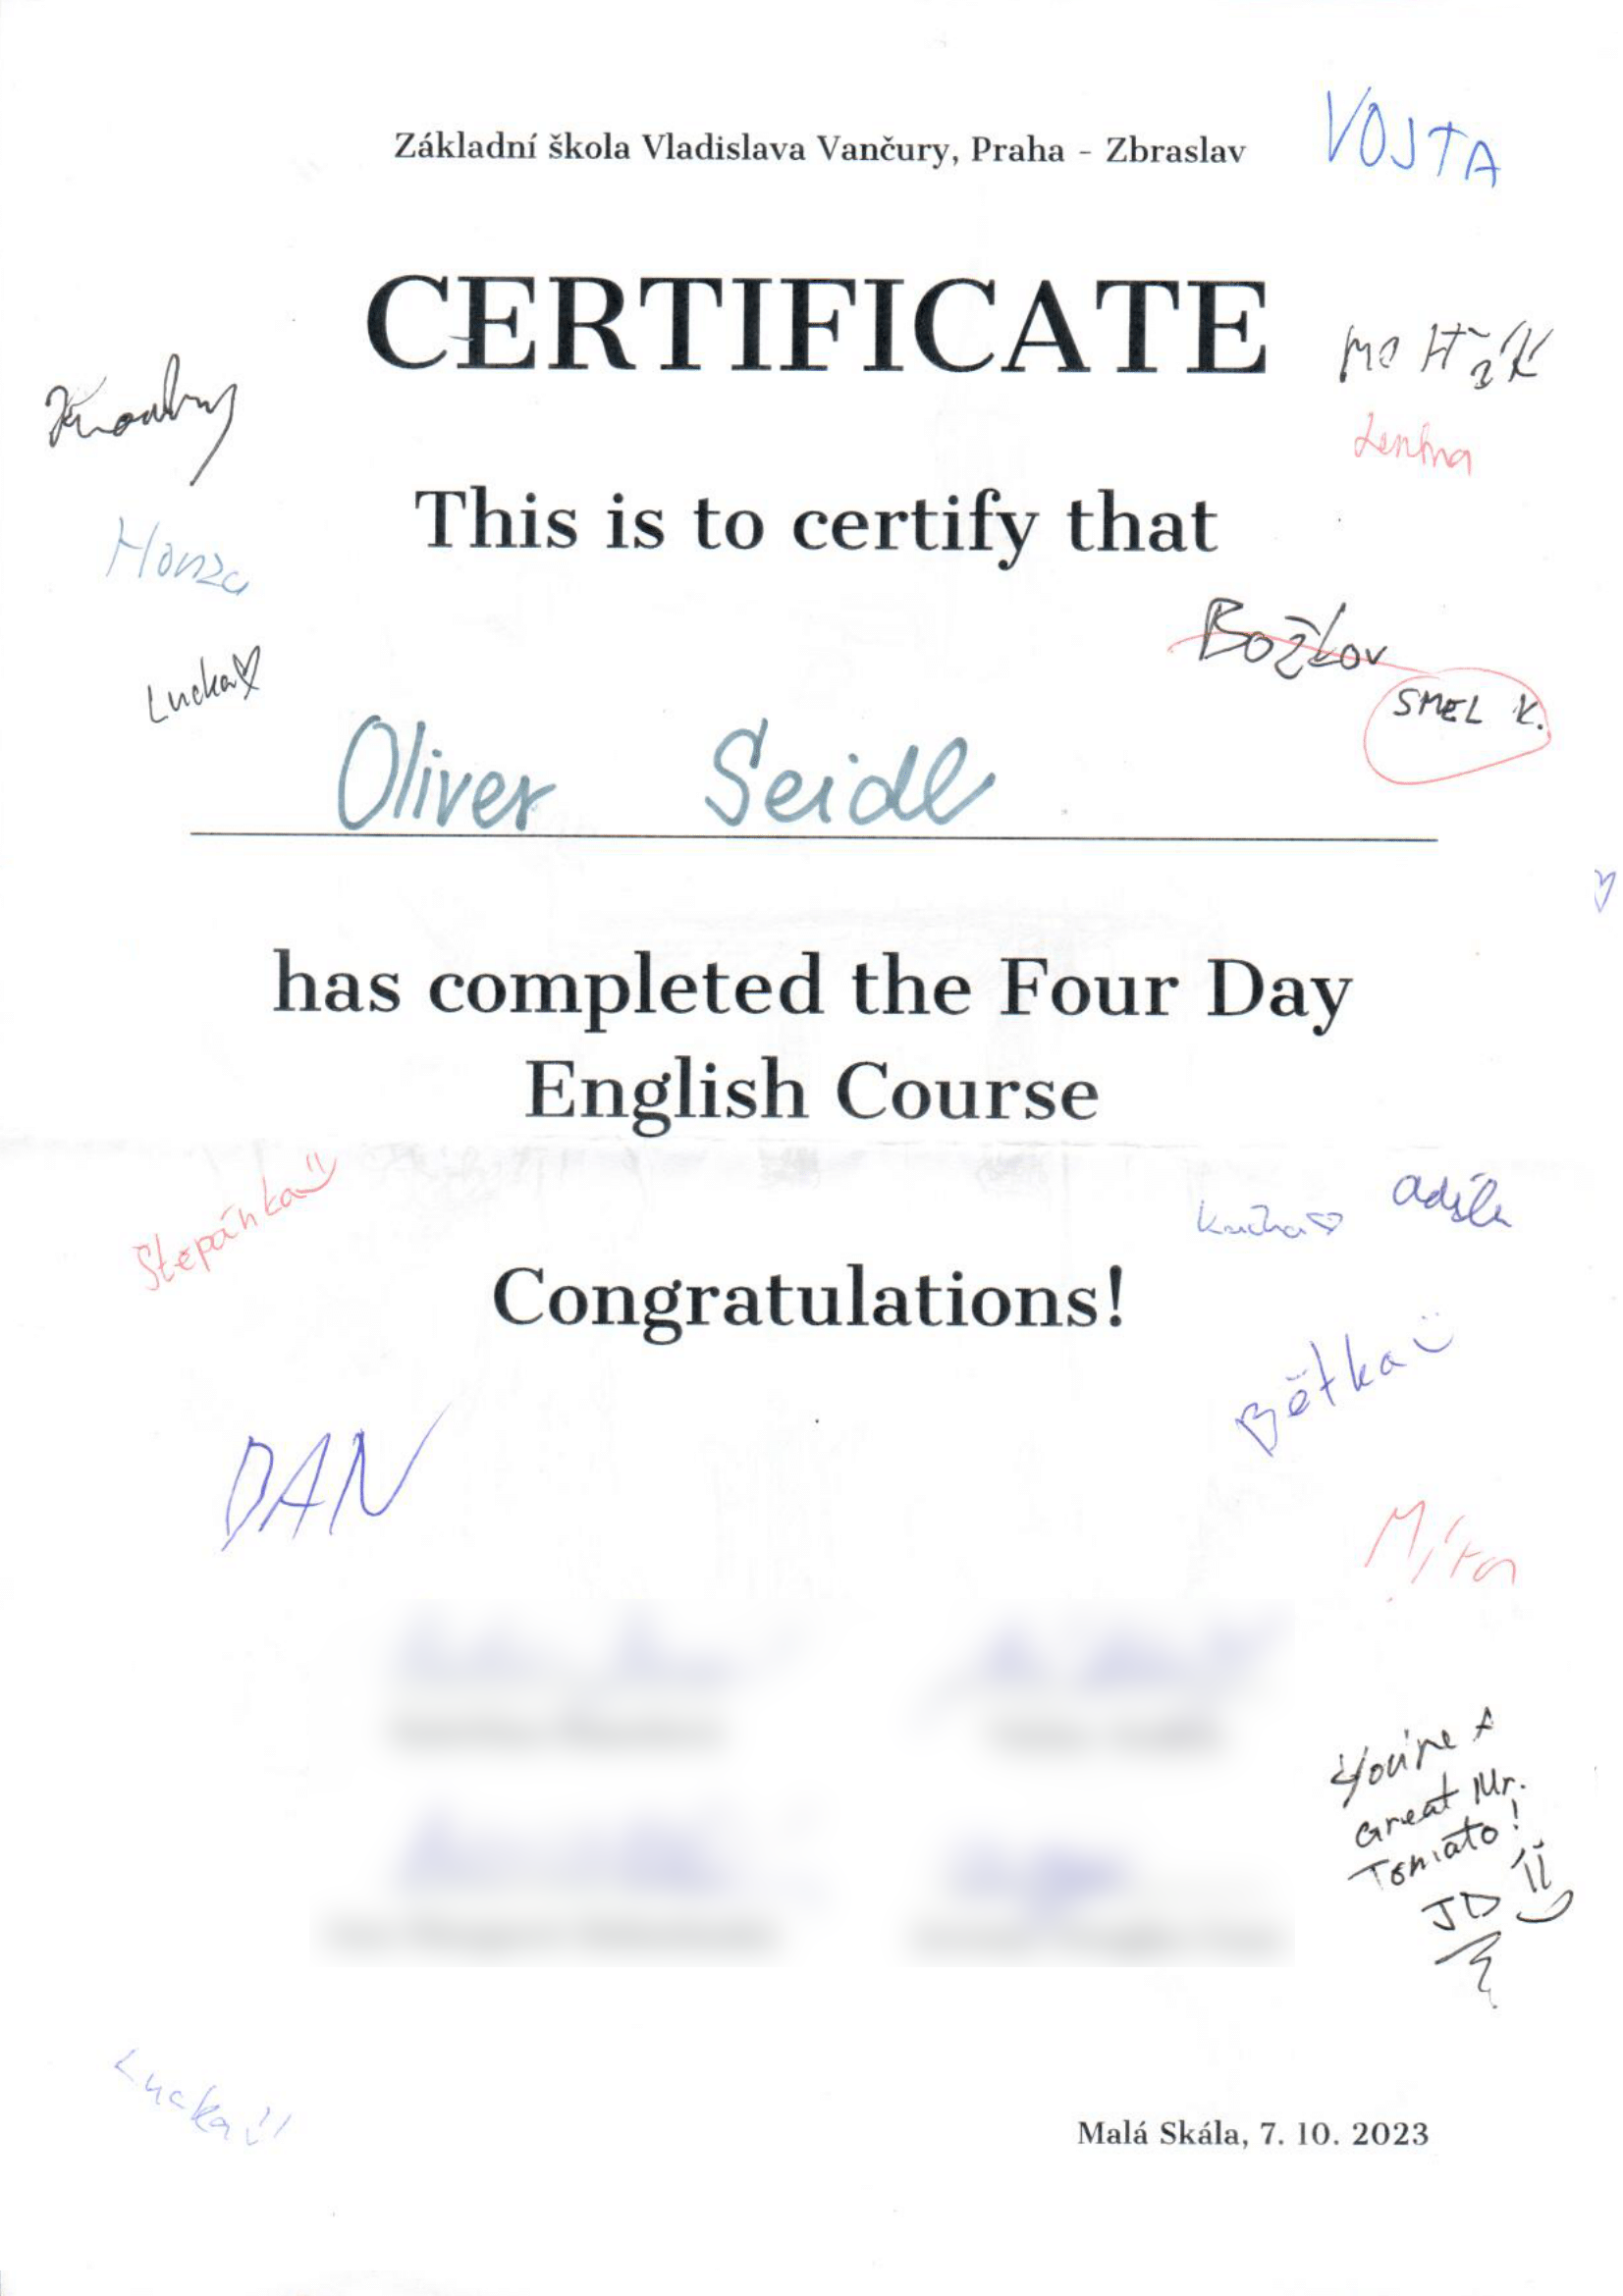 Základní škola Vladislava Vančury, Praha - Zbraslav
VOJTA
CERTIFICATE
Honza
This is to certify that
Božkov
SMEL K.
Lucka
Oliver Seidl
has completed the Four Day
English Course
Štěpánka
Adéla
Congratulations!
Bětka
DAN
Míra
You're A
Great Mr.
Tomato!
JD
Lucka
Malá Skála, 7. 10. 2023